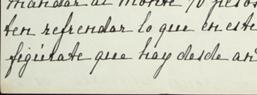 mandar al monte 70 pesos
ten refrendar lo que en este
figurate que hay desde an